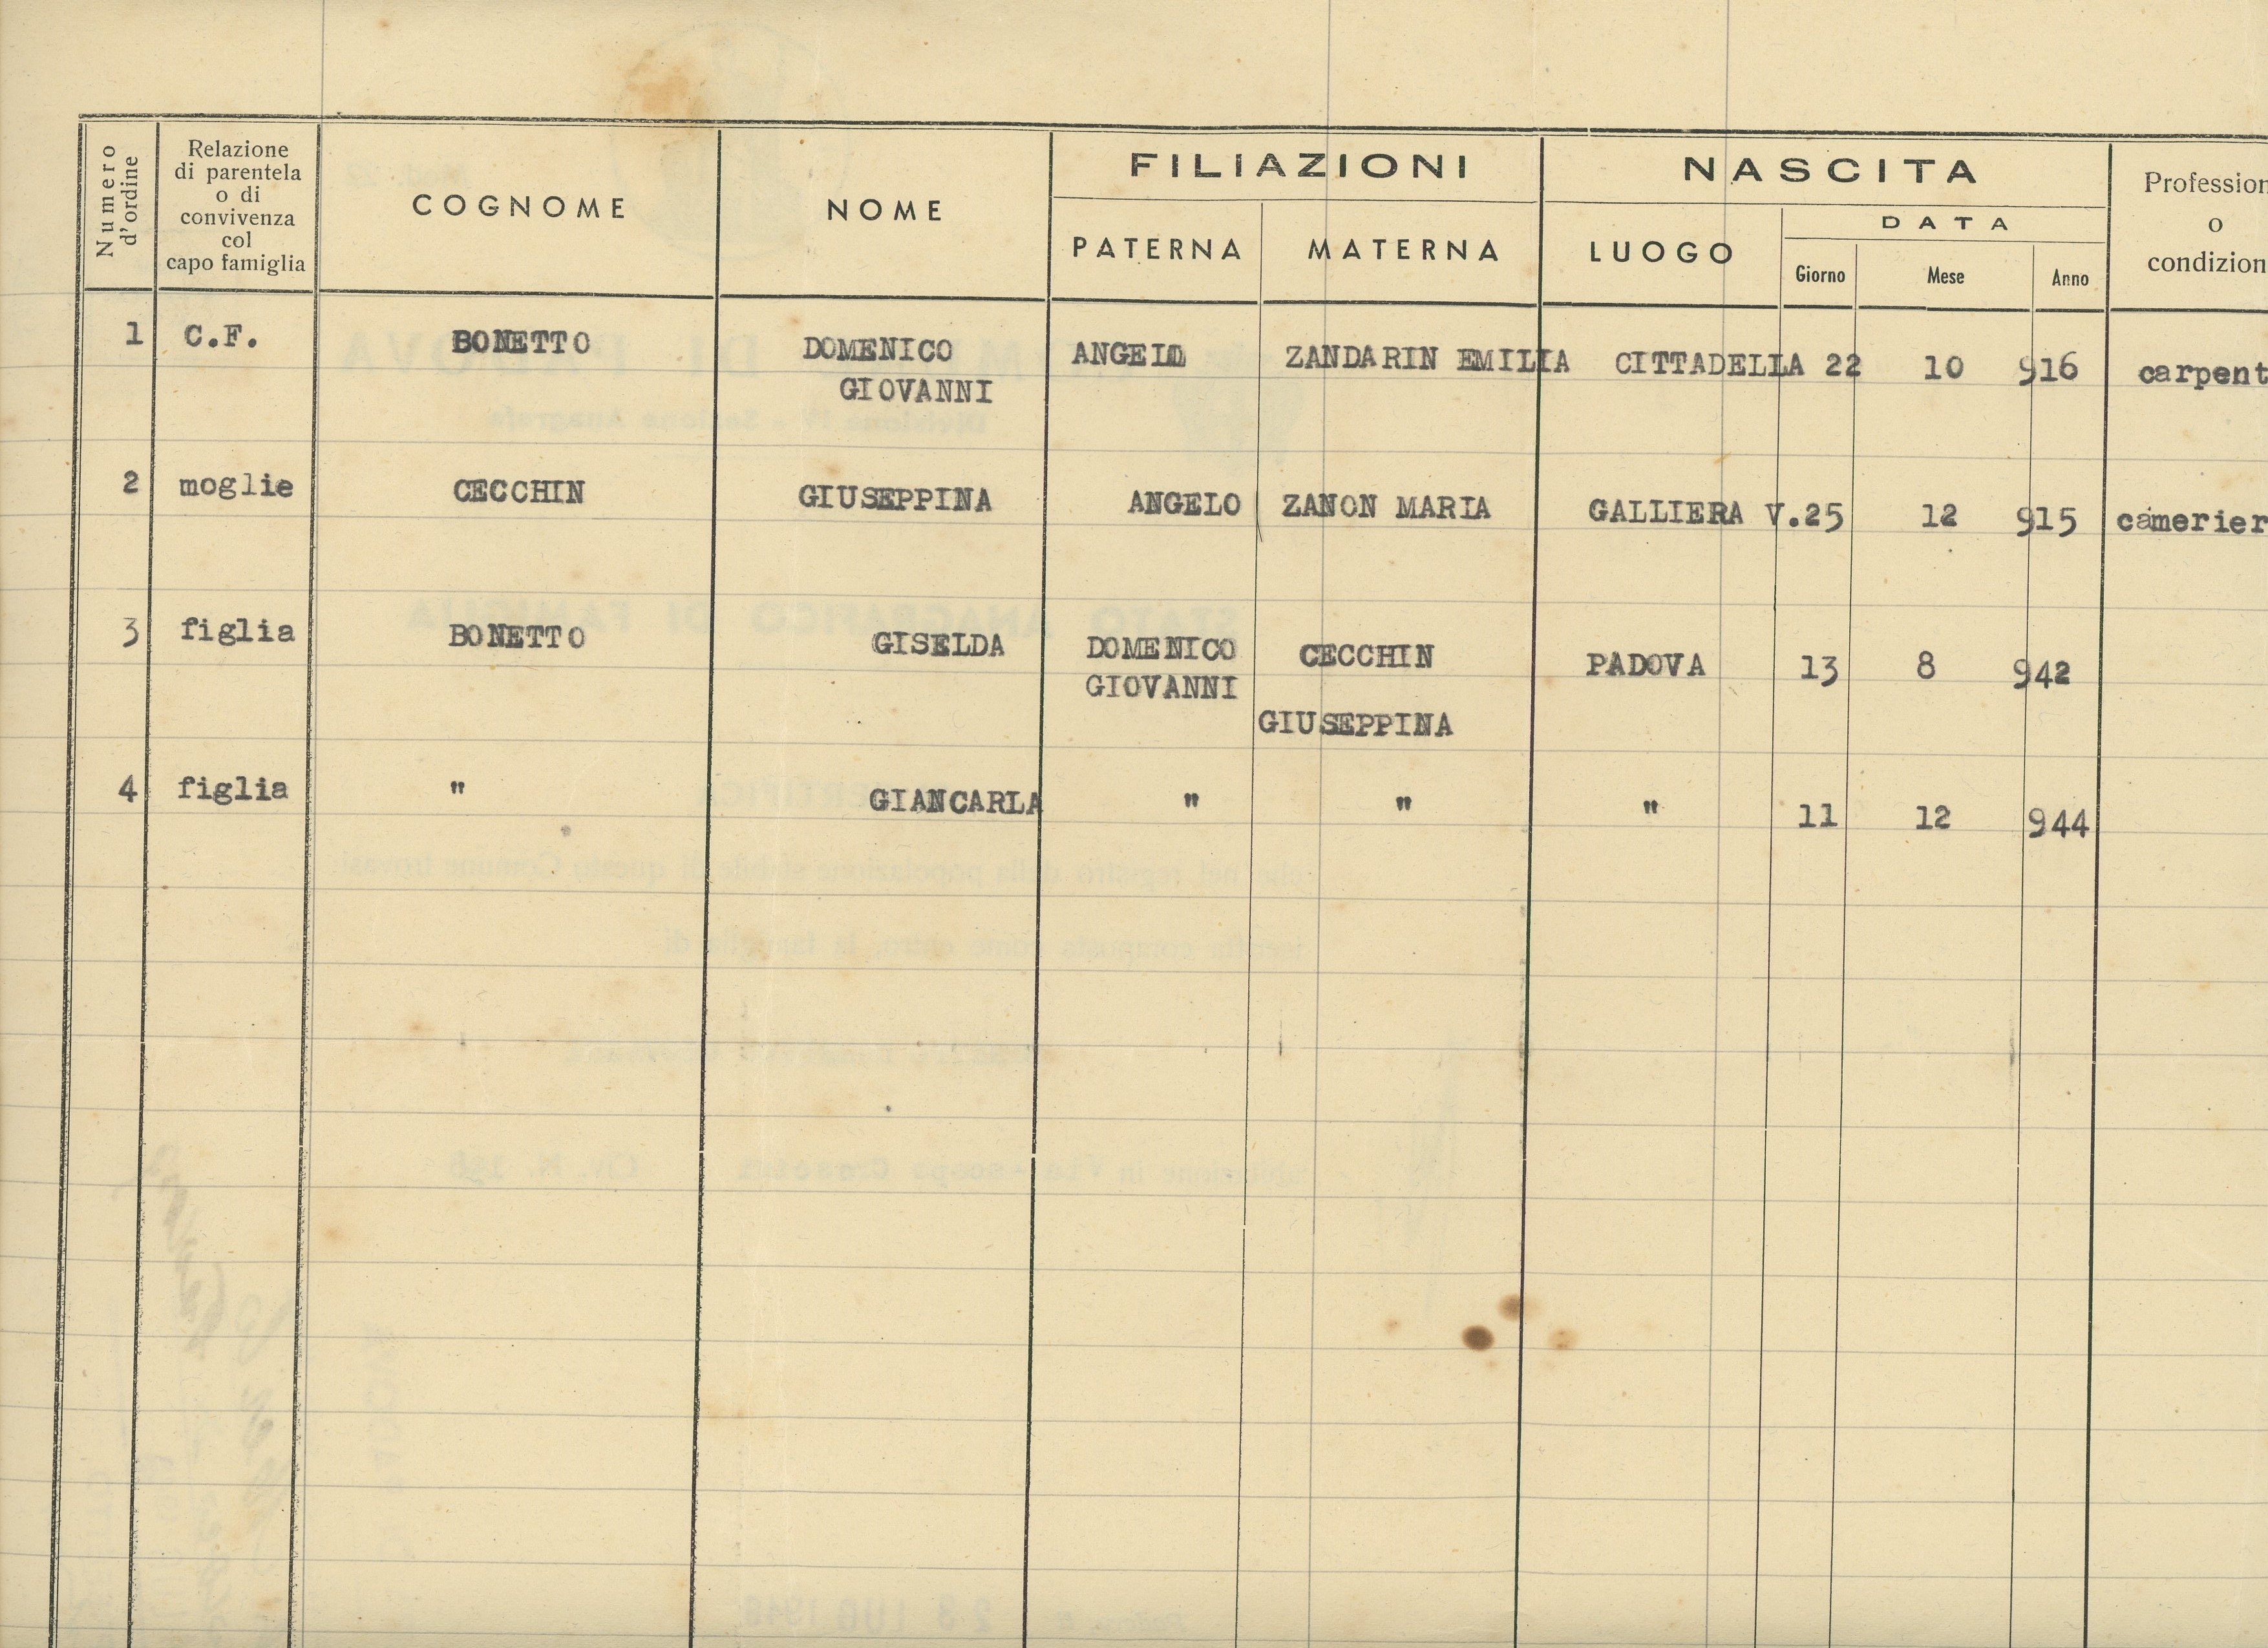 Numero d'ordine
Relazione
di parentela
o di
convivenza
col
capo famiglia
COGNOME
NOME
FILIAZIONI
PATERNA MATERNA
NASCITA
LUOGO
DATA
Giorno Mese Anno
Profession
o
condizion
1 C.F. BONETTO DOMENICO ANGELO ZANDARIN EMILIA CITTADELLA 22 10 916 carpent
GIOVANNI
2 moglie CECCHIN GIUSEPPINA ANGELO ZANON MARIA GALLIERA V. 25 12 915 camerier
3 figlia BONETTO GISELDA DOMENICO CECCHIN PADOVA 13 8 942
GIOVANNI
GIUSEPPINA
4 figlia " GIANCARLA " " " 11 12 944